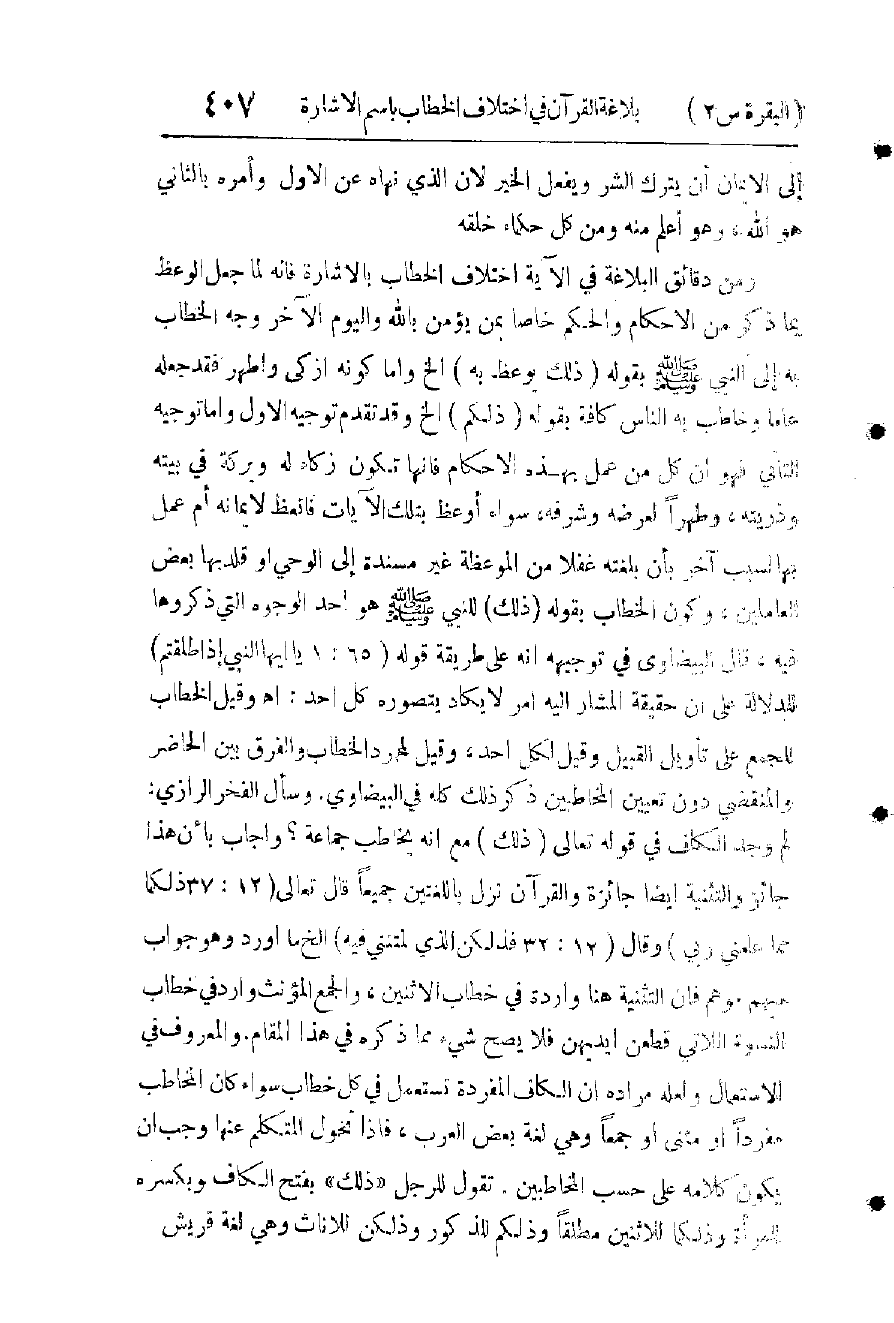 ( البقرة س ٢ ) بلاغة القرآن في اختلاف الخطاب باسم الاشارة ٤٠٧
إلى الايمان أن يترك الشر ويفعل الخير لان الذي نهاه عن الاول وأمره بالثاني
هو الله ، وهو أعلم منه ومن كل حكماء خلقه
ومن دقائق البلاغة في الآية اختلاف الخطاب بالاشارة فانه لما جعل الوعظ
بما ذكر من الاحكام والحكم خاصا بمن يؤمن بالله واليوم الآخر وجه الخطاب
به إلى النبي ﷺ بقوله ( ذلك يوعظ به ) الخ واما كونه ازكى واطهر فقد جعله
عاما وخاطب به الناس كافة بقوله ( ذلكم ) الخ وقد تقدم توجيه الاول واما توجيه
الثاني فهو ان كل من عمل بهذه الاحكام فانها تكون زكاء له وبركة في بيته
وذريته ، وطهراً لعرضه وشرفه، سواء أوعظ بتلك الآيات فاتعظ لايمانه أم عمل
بها لسبب آخر بأن بلغته غفلا من الموعظة غير مسندة إلى الوحي او قلد بها بعض
العاملين ، وكون الخطاب بقوله (ذلك) للنبي ﷺ هو احد الوجوه التي ذكروها
فيه ، قال البيضاوي في توجيهه انه على طريقة قوله ( ٦٥ : ١ يا ايها النبي إذا طلقتم)
للدلالة على ان حقيقة المشار اليه امر لا يكاد يتصوره كل احد : اه وقيل الخطاب
للجمع على تأويل القبيل وقيل لكل احد ، وقيل لمجرد الخطاب والفرق بين الحاضر
والمنقضي دون تعيين المخاطبين ذكر ذلك كله في البيضاوي. وسأل الفخر الرازي:
لم وحد الكاف في قوله تعالى ( ذلك ) مع انه يخاطب جماعة ؟ واجاب بأن هذا
جائز والتثنية ايضا جائزة والقرآن نزل باللغتين جميعاً قال تعالى( ١٢ : ٣٧ ذلكما
مما علمني ربي ) وقال ( ١٢ : ٣٢ فذلكن الذي لمتنني فيه) الخ ما اورد وهو جواب
مبهم موهم فان التثنية هنا واردة في خطاب الاثنين ، والجمع المؤنث وارد في خطاب
النسوة اللاتي قطعن ايديهن فلا يصح شيء مما ذكره في هذا المقام. والمعروف في
الاستعمال ولعله مراده ان الكاف المفردة تستعمل في كل خطاب سواء كان المخاطب
مفرداً او مثنى او جمعاً وهي لغة بعض العرب ، فاذا تحول المتكلم عنها وجب ان
يكون كلامه على حسب المخاطبين . تقول للرجل «ذلك» بفتح الكاف وبكسره
للمرأة وذلكما للاثنين مطلقاً وذلكم للذكور وذلكن للاناث وهي لغة قريش